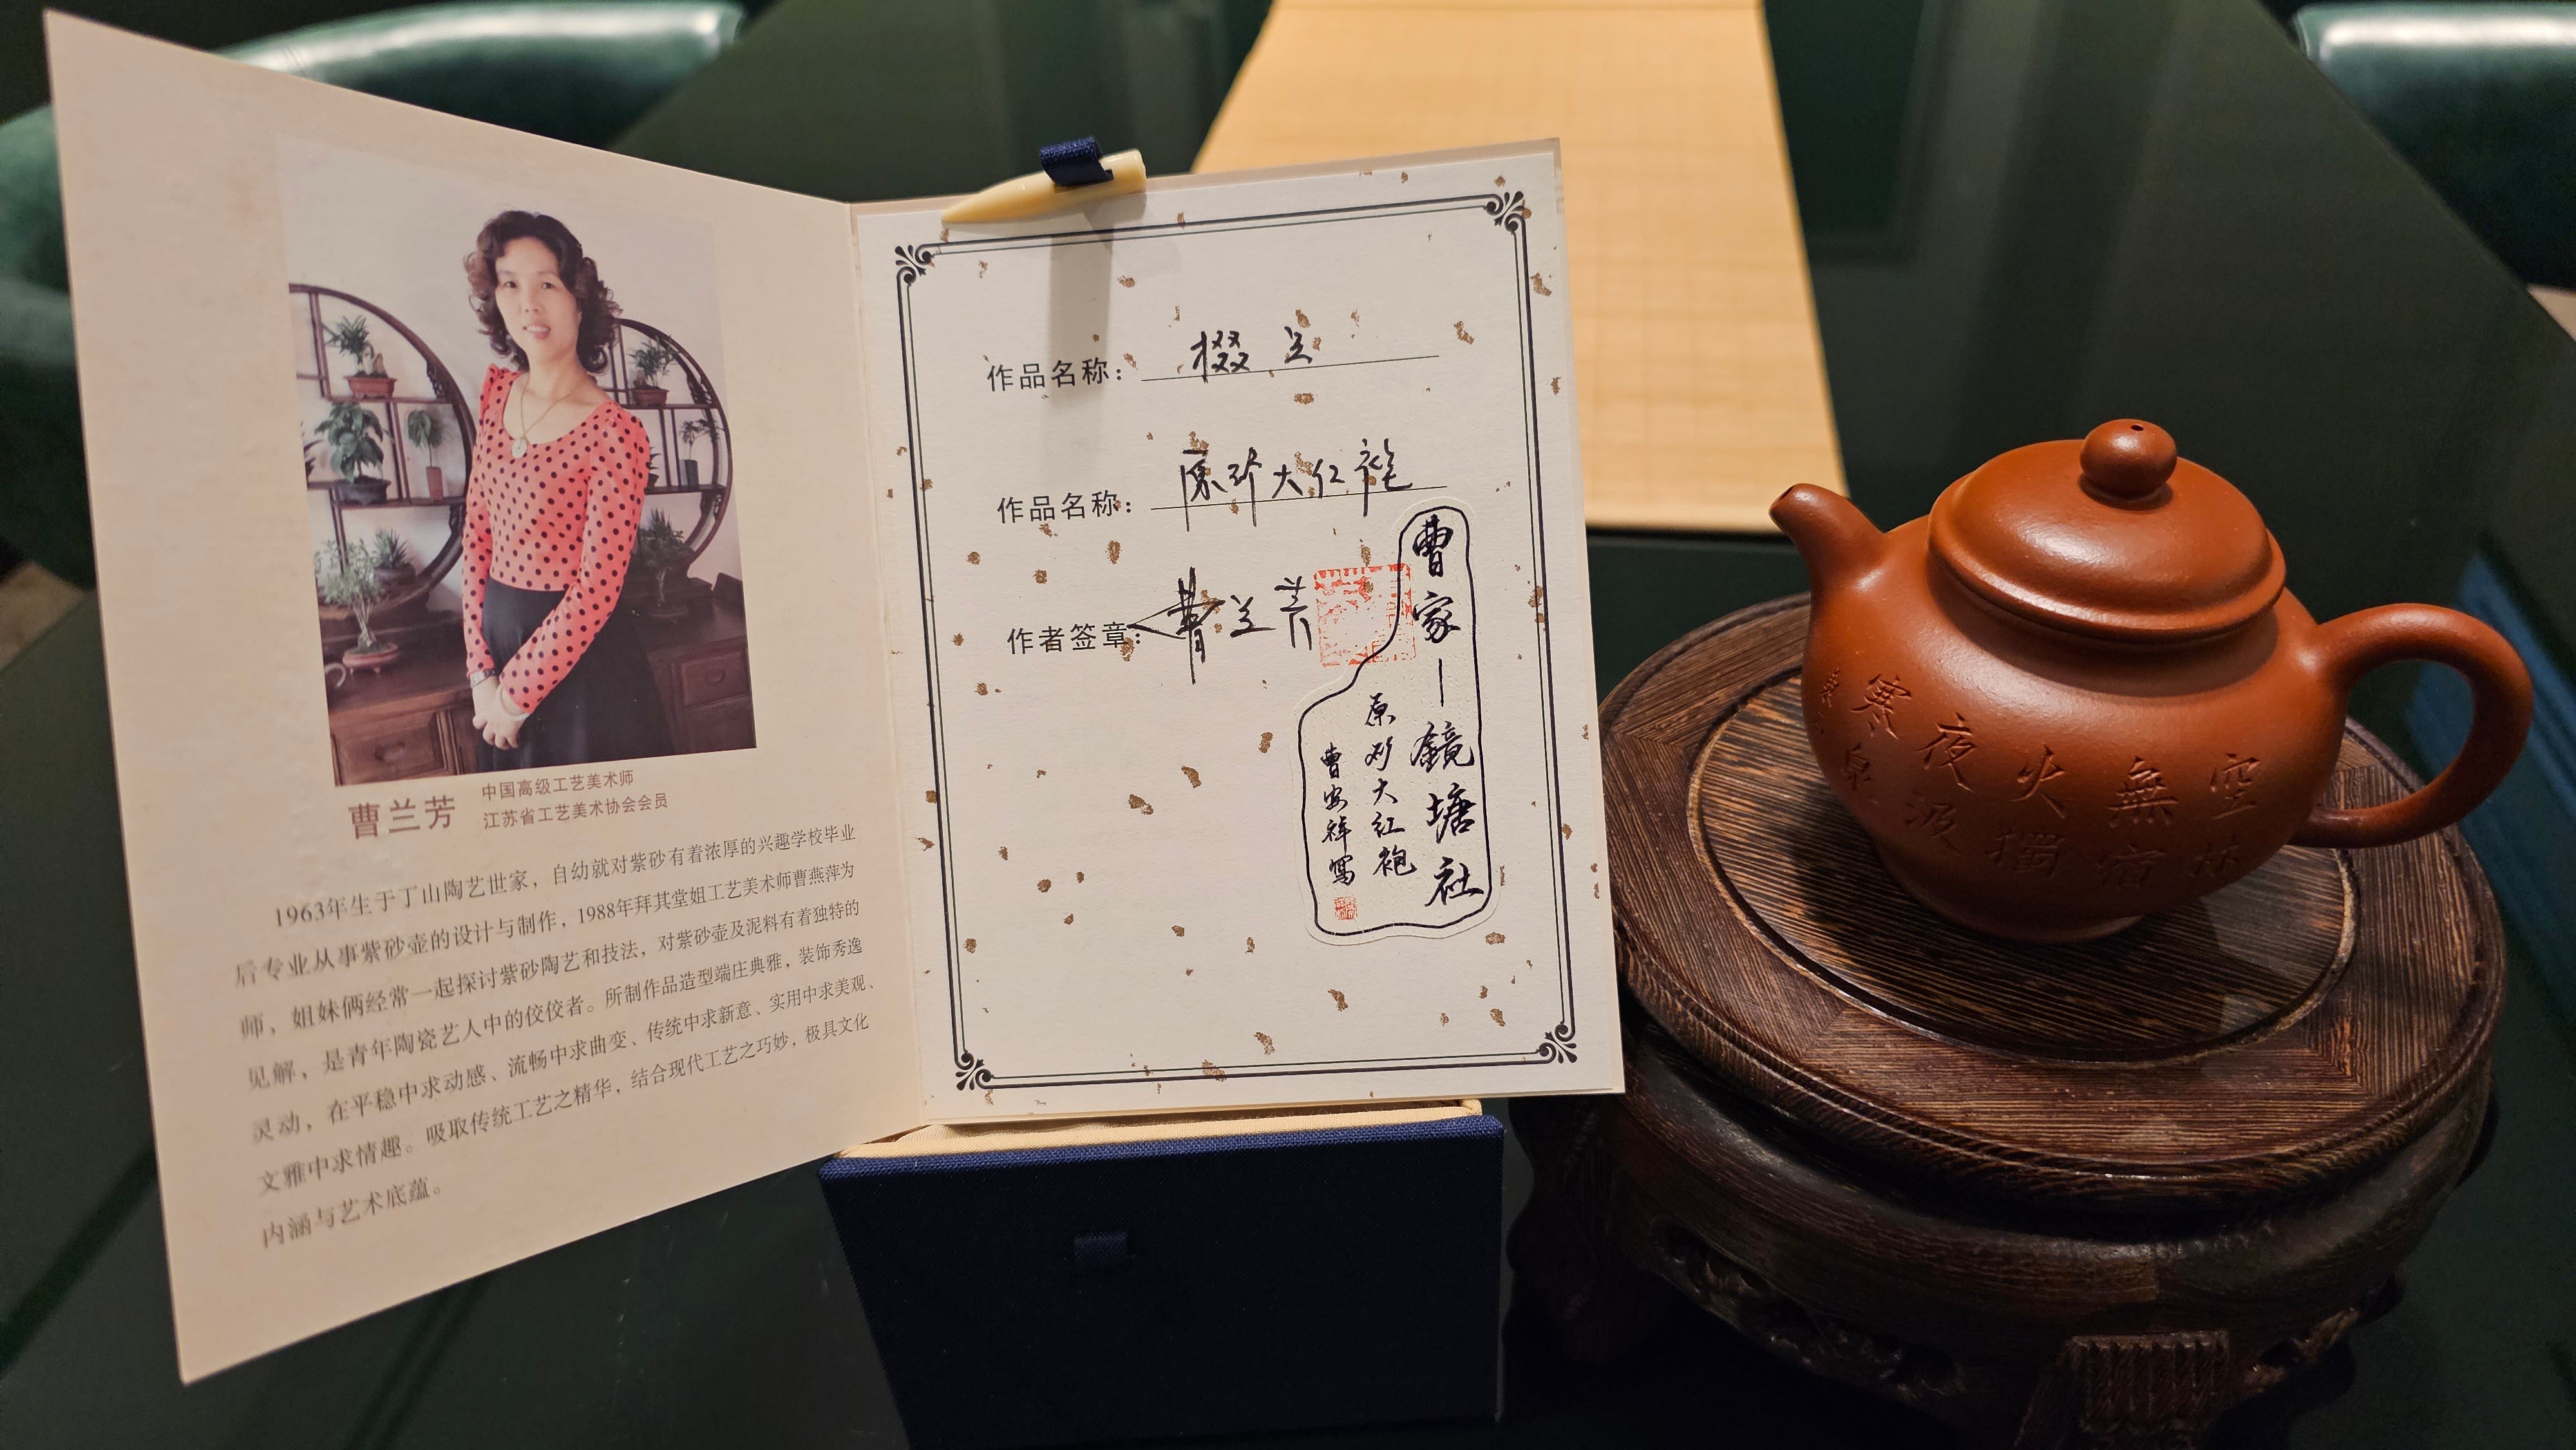 曹兰芳
中国高级工艺美术师
江苏省工艺美术协会会员
1963年生于丁山陶艺世家，自幼就对紫砂有着浓厚的兴趣学校毕业
后专业从事紫砂壶的设计与制作，1988年拜其堂姐工艺美术师曹燕萍为
师，姐妹俩经常一起探讨紫砂陶艺和技法，对紫砂壶及泥料有着独特的
见解，是青年陶瓷艺人中的佼佼者。所制作品造型端庄典雅，装饰秀逸
灵动，在平稳中求动感、流畅中求曲变、传统中求新意、实用中求美观、
文雅中求情趣。吸取传统工艺之精华，结合现代工艺之巧妙，极具文化
内涵与艺术底蕴。
作品名称：掇
作品名称：原矿大红袍
作者签章：曹兰芳
曹家一鏡塘社
原矿大红袍
曹安祥寫
空
無
火
夜汲
寒泉